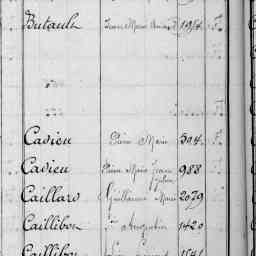 Butault Jean Marie 1954
Cadieu Pierre Marie 304
Cadieu Pierre Marie Jean 988
Julien
Caillard Guillaume Marie 2079
Caillibon Augustin 1420
Caillibon 1541